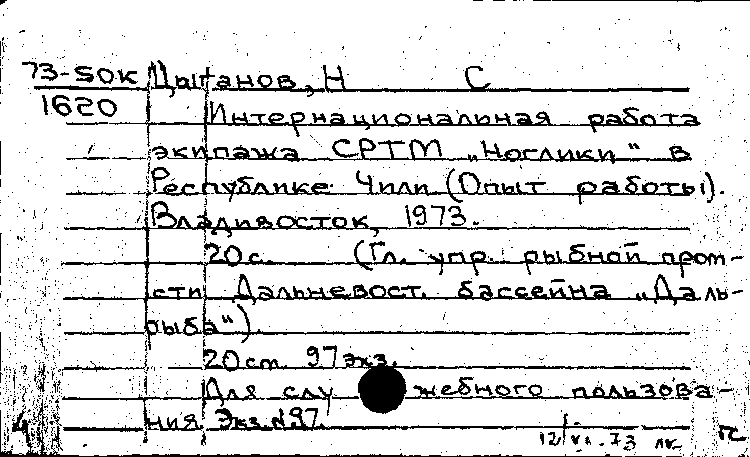 73-50К Цыганов, Н С
1620
Интернациональная работа
экипажа СРТМ „Ноглики" в
Республике Чили (Опыт работы).
Владивосток, 1973.
20 с. (Гл. упр. рыбной пром-
сти Дальневост. бассейна „Даль-
рыба").
20 см. 97 экз.
Для служебного пользова-
ния Экз. №97.